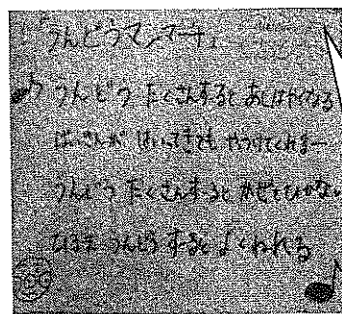 うんどうって
うんどう たくさんすると あしはやくなる
ばいきんが はいってきても やっつけてくれる
うんどう たくさんすると かぜもひかない
ひるま うんどう すると よくねれる